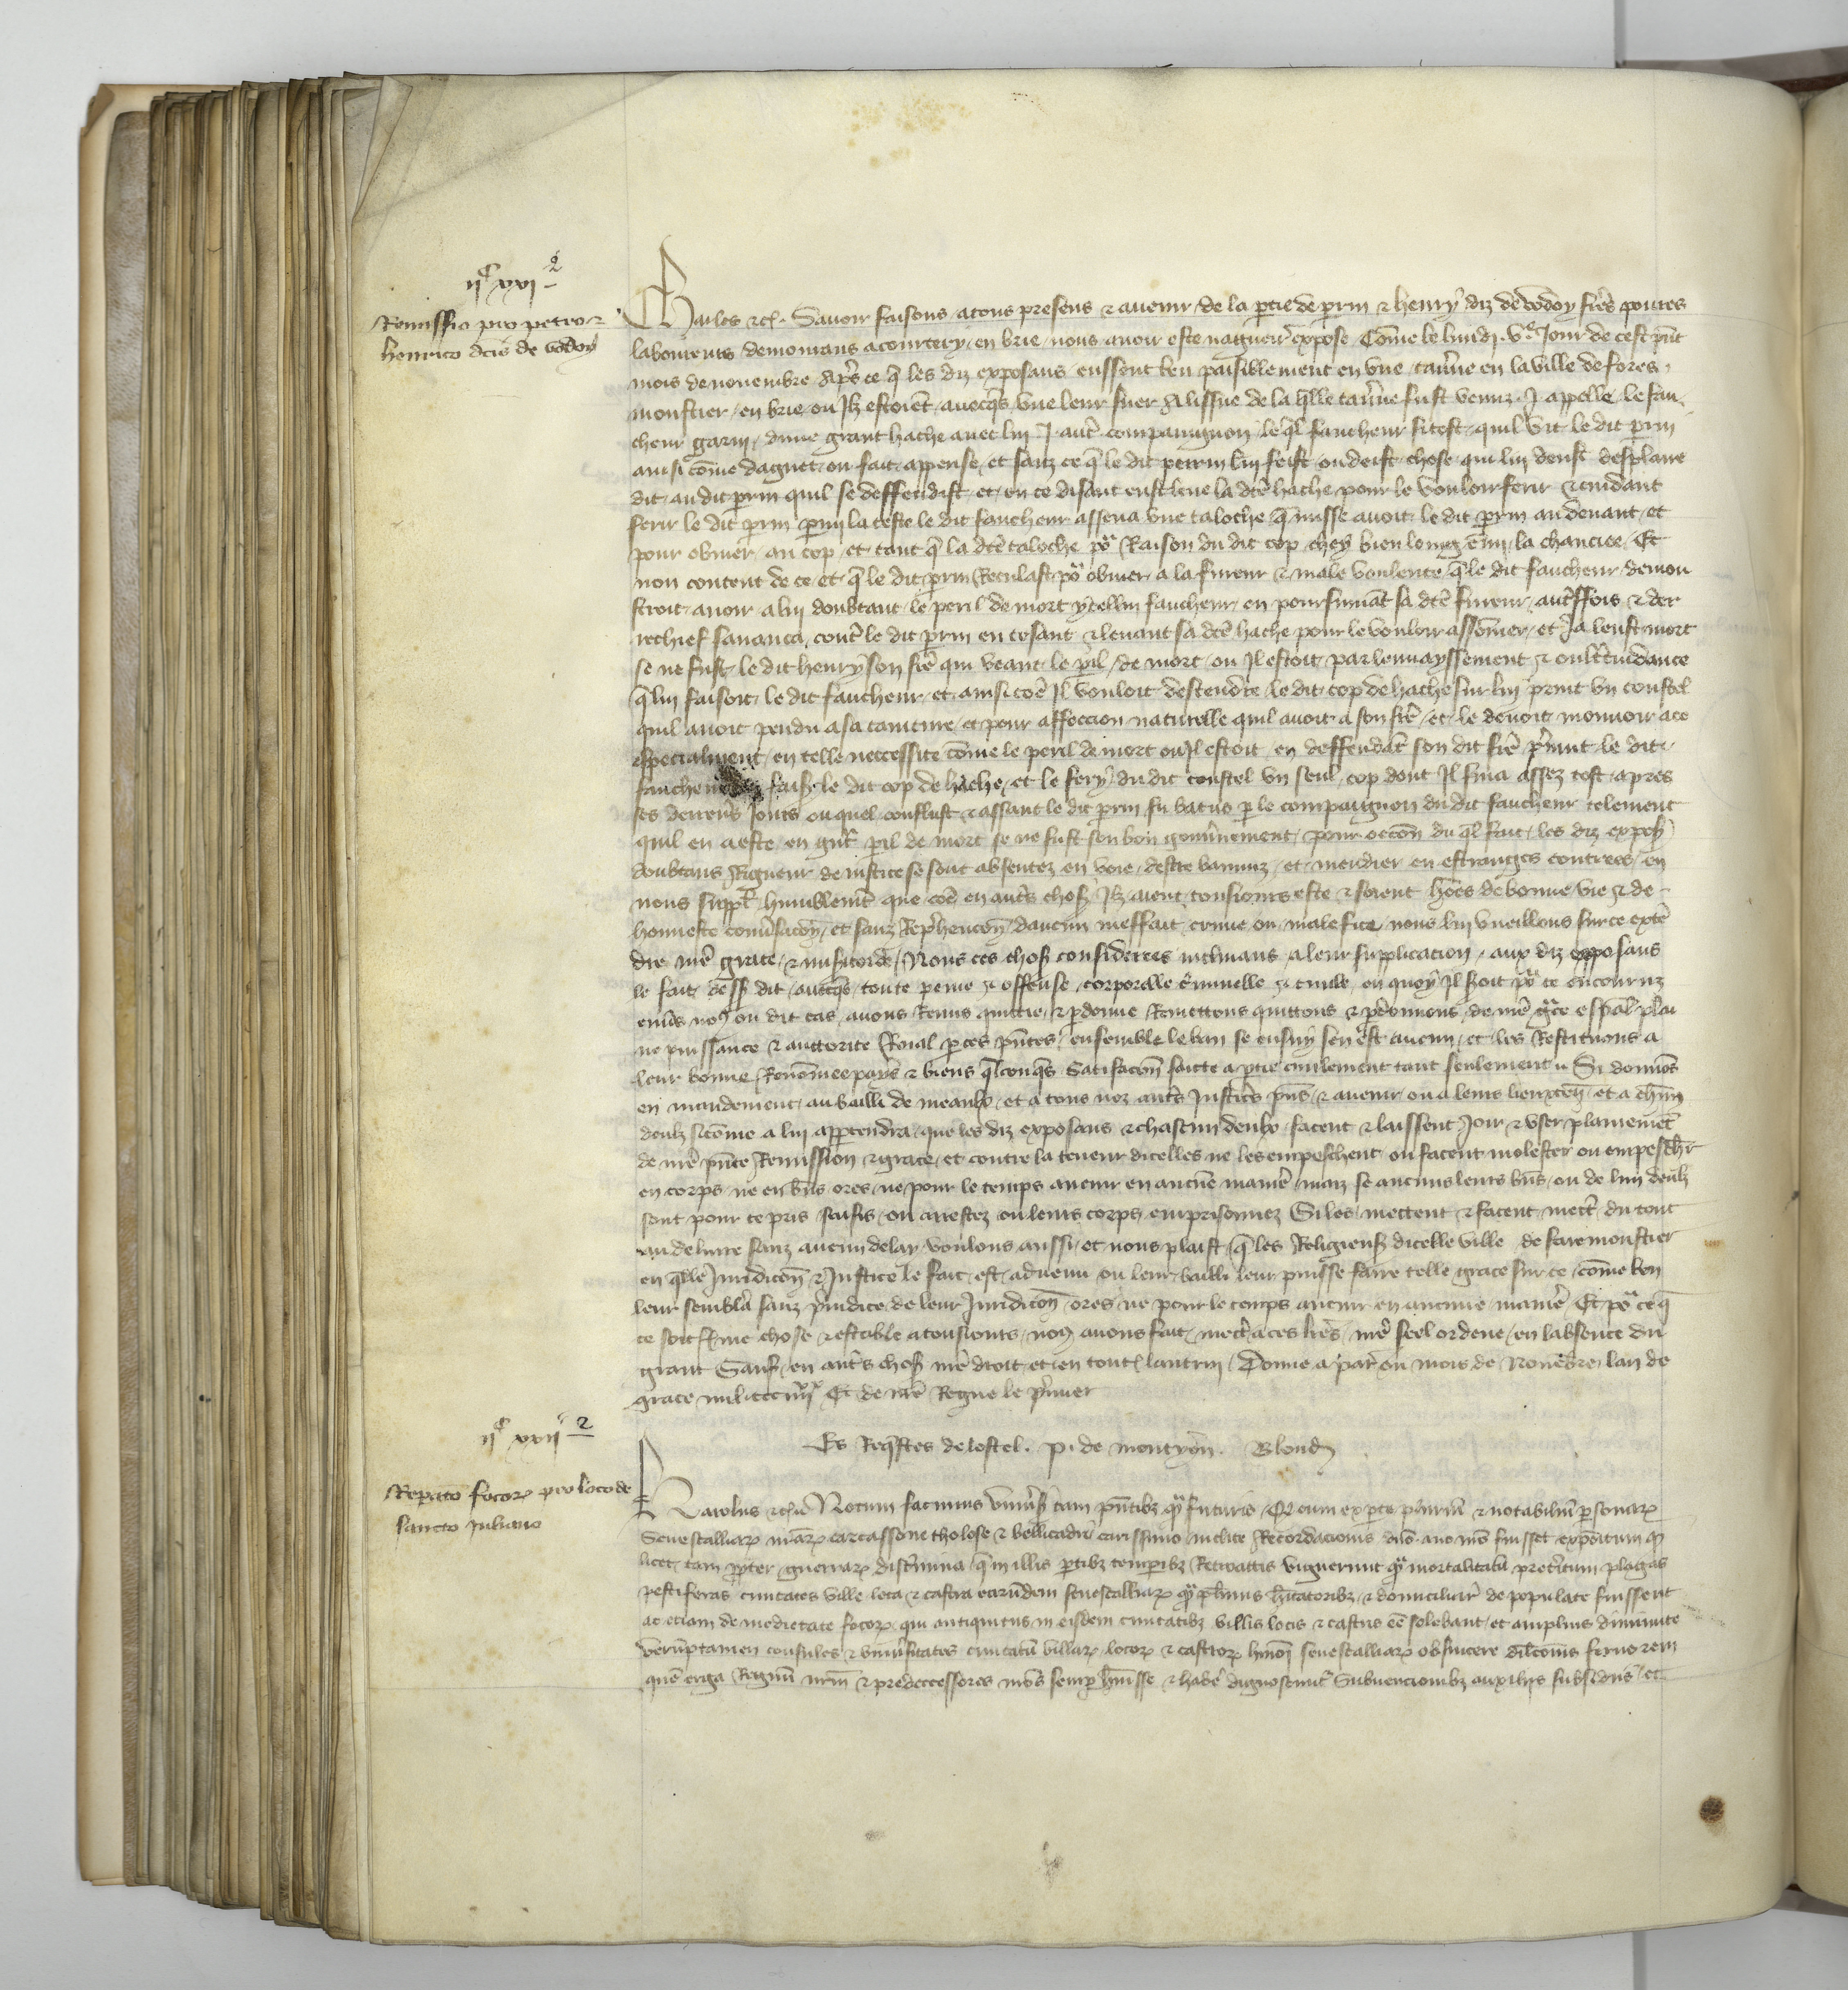 ii^c xxi 2
Remissio pro petro et
henrico dcis de vodoy
Charles etc. Savoir faisons a tous presens et avenir de la ptie de prin et henry diz de vodoy freres poures
laboureurs demourans a courtery en brie nous avoir este naguer expose Come le lundi v^e jour de cest pnt
mois de novembre Aprs ce q les diz exposans eussent beu paisiblement en une tavne en la ville de fores
monstier en brie ou Ilz estoiet avecqs une leur suer A lissue de la qlle tavne fust venuz J appelle le fau
cheur garni dune grant hache avec lui J autre compaignon le ql faucheur si tost quil vit le dit prin
ainsi come daguet ou fait appense et sanz ce q le dit perrin lui feist ou deist chose qui lui deust desplaire
dit au dit prin quil se deffendist et en ce disant eust leve la dce hache pour le vouloir ferir et cuidant
ferir le dit prin pmi la teste le dit faucheur assena une taloche q misse avoit le dit prin au devant et
pour obvier au cop et tant q la dce taloche por Raison du dit cop chey bien loing emi la chaucee Et
non content de ce et q le dit prin Reculast por obvier a la fureur et male voulente q le dit faucheur demon
stroit avoir a lui doubtant le peril de mort ycellui faucheur en poursuivat sa dce fureur autrffois et der
rechief savanca contre le dit prin en cesant et levant sa dce hache pour le vouloir assomer et Ja leust mort
se ne fust le dit henry son fre qui veant le pil de mort ou Il estoit par lenvayssement et oultrecuidance
q lui faisoit le dit faucheur et ainsi coe Il vouloit descendre le dit cop de hache sur lui print un coustel
quil avoit pendu a sa cainture et pour affeccion naturelle quil avoit a son fre et le devoit mouvoir a ce
especialment en telle neccessite come le peril de mort ou Il estoit en deffendat son dit fre pvint le dit
faucheur de faire le dit cop de hache et le fery du dit coustel un seul cop dont Il fina assez tost apres
ses derrens jours ou quel conflust et assaut le dit prin fu batus p le compaignon du dit faucheur telement
quil en a este en grt pil de mort se ne fust son bon gouvnement pour occon du ql fait les diz expos
doubtans Rigueur de justice se sont absentez en voie destre banniz et mendier en estranges contrees en
nous suppt humblemet que coe en autrs choses Ilz aient tousjours este et soient hoes de bonne vie et de
honneste convsacon et sanz Reprhencon daucun meffait crime ou malefice nous lui vueillons sur ce exte
dre nre grace et misicorde Nous ces choses considerees inclinans a leur supplicacion aux diz exposans
le fait dess dit avecqs toute peine et offense corporelle criminelle et civile en quoy Il soit por ce encouruz
envs nos ou dit cas avons Remis quittie et pdonne Remettons quittons et pdonnons de nre grce espal plai
ne puissance et auttorite Roial p ces pntes ensemble le ban se ensuy sen est aucun et les Restituons a
leur bonne Renommee pays et biens qlconqs Satifacon faicte a ptie civilement tant seulement Si donnos
en mandement au bailli de meaulx et a tous noz autrs Justicrs pns et avenir ou a leurs lieuxten et a chun
deulz sicomme a lui apptendra que les diz exposans et chascun deulx facent et laissent Joir et user plainemet
de nre pnte Remission et grace et contre la teneur dicelles ne les empeschent ou facent molester ou empeschr
en corps ne en bns ores ne pour le temps avenir en aucune manre maiz se aucuns leurs bns ou de lun deulz
sont pour ce pris saisis ou arrestez ou leurs corps emprisonnez Si les mettent et facent mectr du tout
au delivre sanz aucun delay voulons aussi et nous plaist q les Religieuses dicelle ville de faremonstier
en qlle Juridicon et Justice le fait est advenu ou leur bailli leur puisse faire telle grace sur ce come bon
leur semblra sanz prejudice de leur Juridicon ores ne pour le temps avenir en aucune manre Et por ce q
ce soit ferme chose et estable a tousjours nos avons fait mectr a ces lres nre seel ordene en labsence du
grant Sauf en autrs choses nre droit et en toutes lautrui Donne a par ou mois de Novebre lan de
grace mil ccc iiii^xx Et de nre Regne le premier
Es Reqstes de lostel. P. de montyon. Blond
ii^c xxii 2
Reparato focor pro loco de
sancto Juliano
Karolus etc Notum facimus univsis tam pntibz q futuris Q cum ex pte plurium et notabiliu psonar
Senescalliar nrar carcassone tholose et bellicadri carissimo inclite Recordacionis dno avo nro fuisset expoitum q
licet tam ppter guerrar discrimina q in illis ptibz tempibz Retroactis viguerunt q mortalitatu preteritum plagas
pestiferas civitates ville loca et castra earundem senescalliar q plimis hitatoribz et domiciliar depopulate fuissent
ac etiam de medietate focor qui antiquitus in eisdem civitatibz villis locis et castris ee solebant et amplius diminute
veruptamen consules et univsitates civitatu villar locor et castror hmoi senescalliar obsincere dilcois fervorem
que erga Regnu nrm et predecessores nros semp huisse et habe dignoscunt Subvencionibz auxiliis subsidiis et